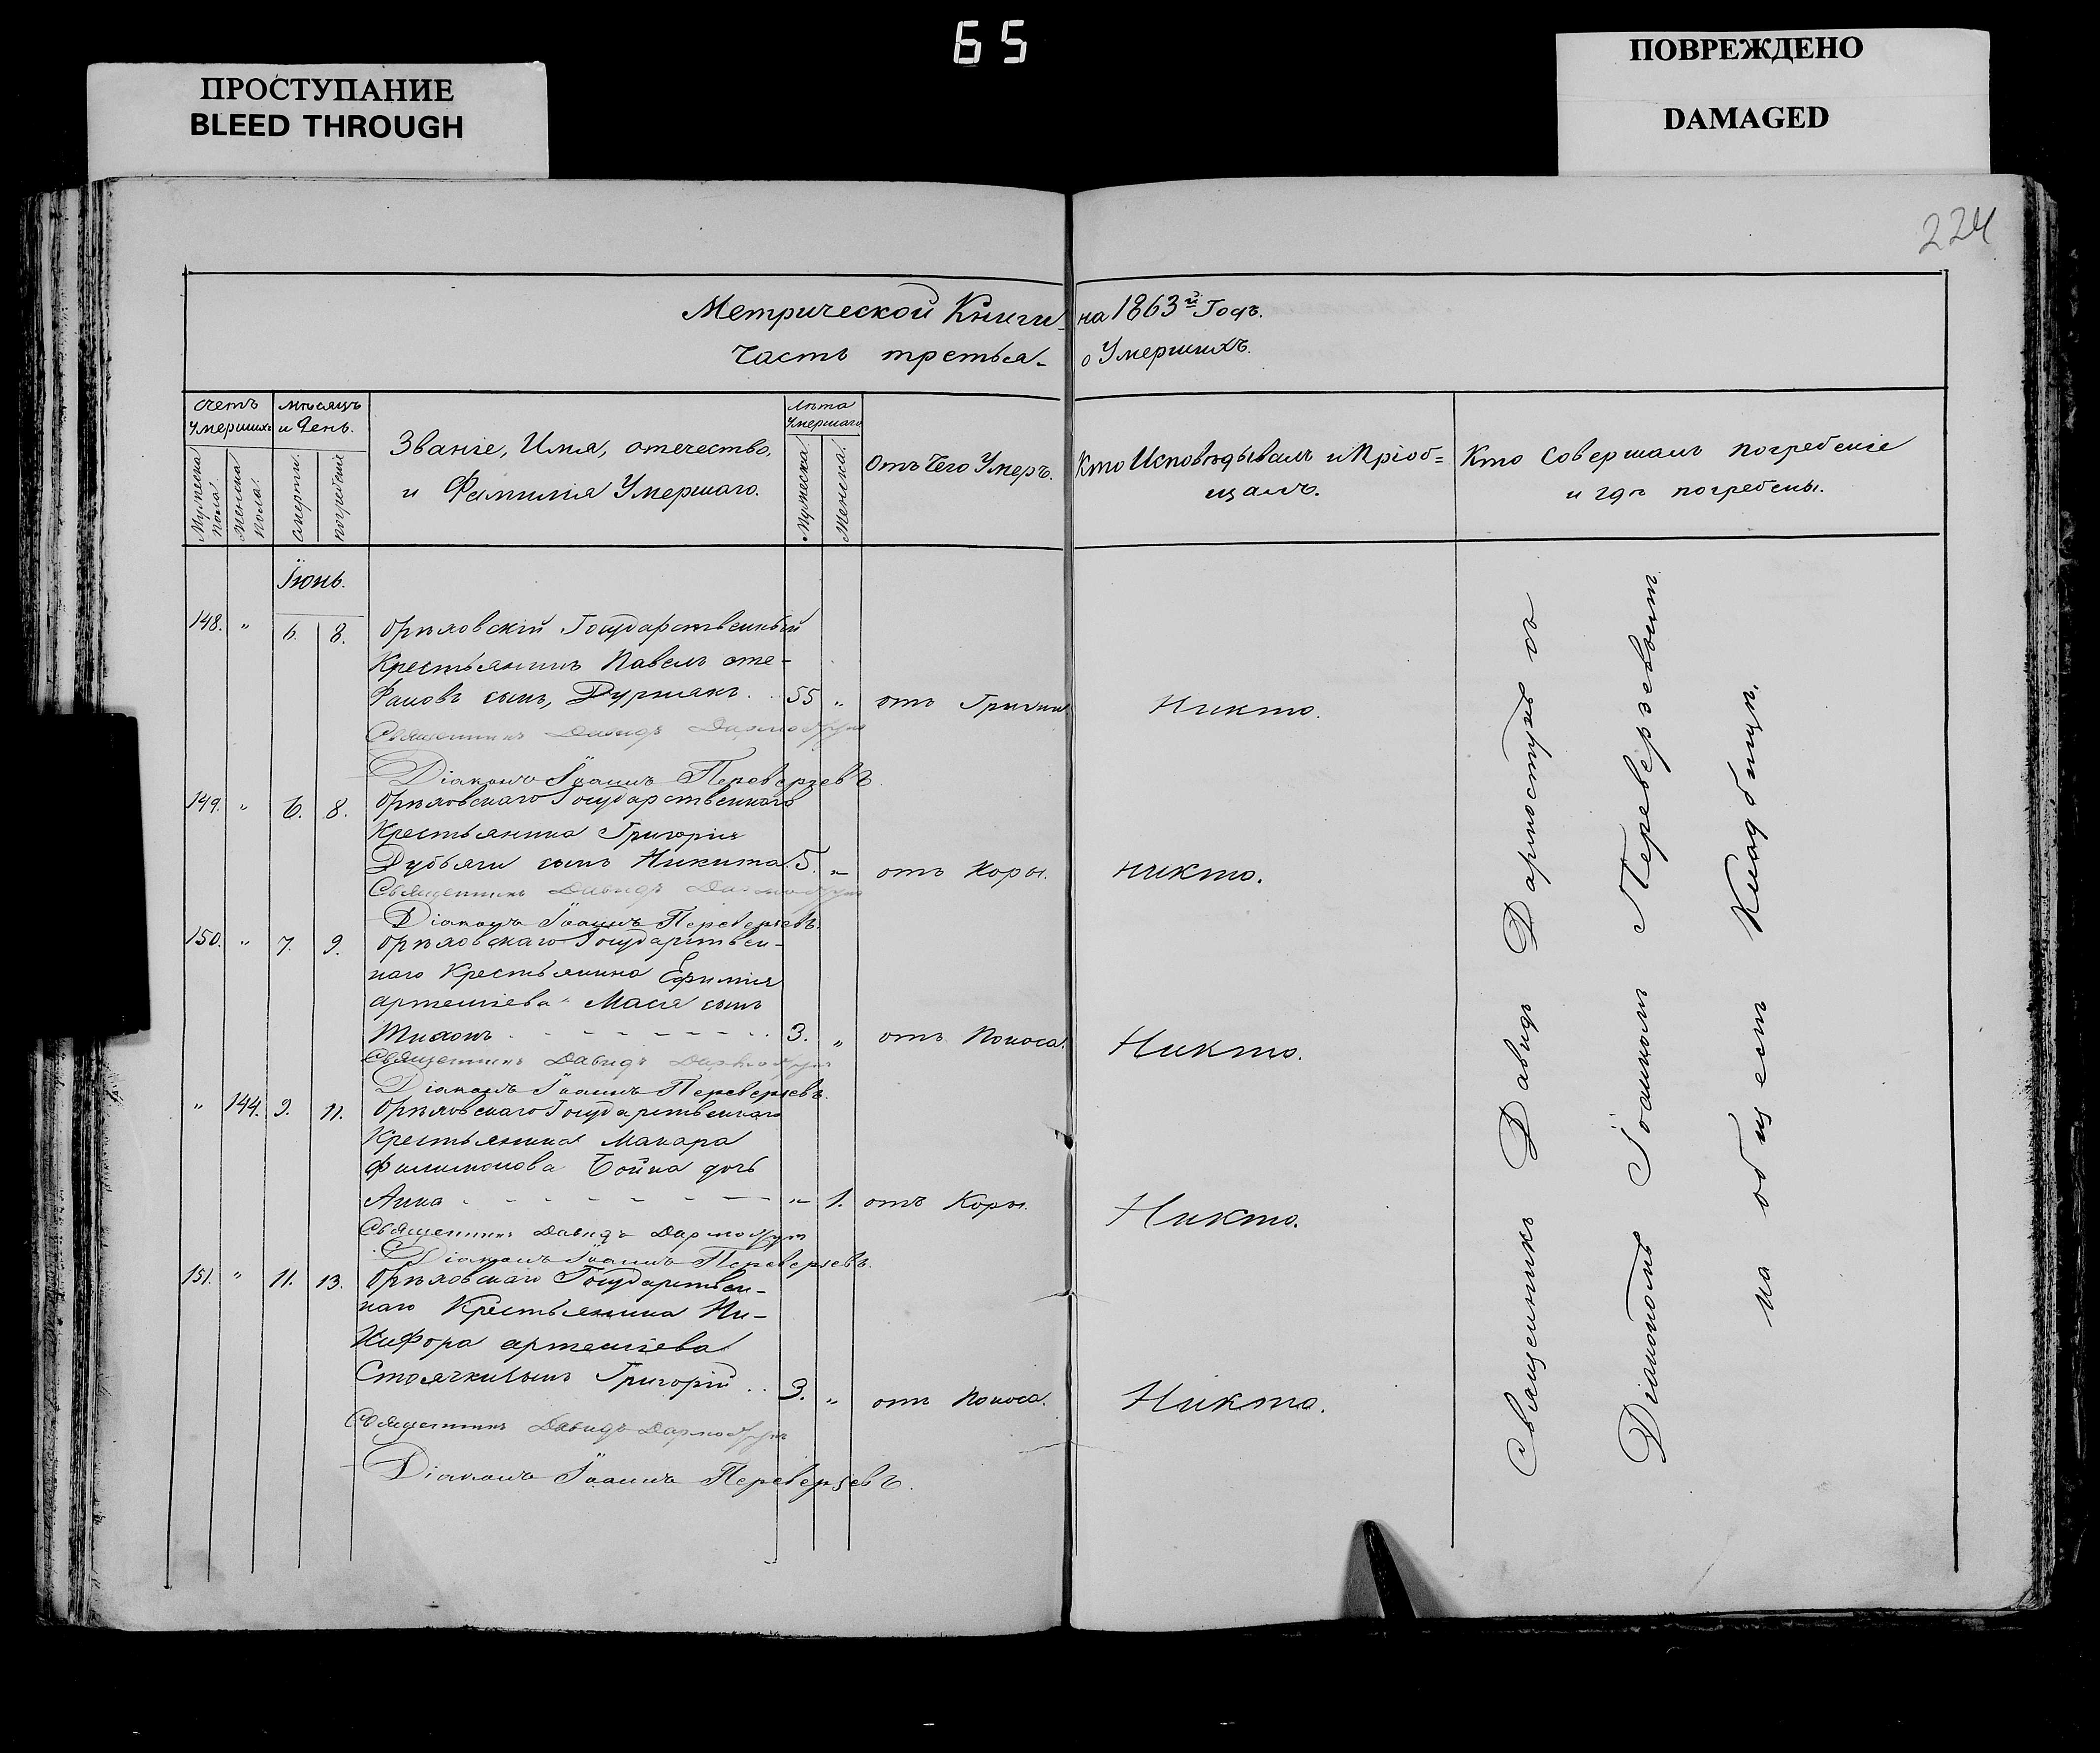 65
ПРОСТУПАНИЕ
BLEED THROUGH
ПОВРЕЖДЕНО
DAMAGED
224
Метрической Книги на 1863й Годъ.
Часть третья о Умершихъ.
Счетъ Умершихъ
Мужеска пола.
Женска пола.
Мѣсяцъ и День.
Смерти.
погребенія
Званіе, Имя, отечество,
и Фамилія Умершаго.
Лѣта Умершаго
Мужеска.
Женска.
Отъ Чего Умеръ.
Кто Исповѣдывалъ и Пріоб=
щалъ.
Кто Совершалъ погребеніе
и гдѣ погребены.
Іюнь.
148. " 6. 8. Орѣховскій Государственный
Крестьянинъ Павелъ Сте-
фановъ сынъ, 55 " отъ Никто.
Священникъ Давидъ
Діаконъ Іоаннъ Переверзевъ
149. " 6. 8. Орѣховскаго Государственнаго
Крестьянина Григорія
Дубяги сынъ Никита. 5. " отъ Кори. никто.
Священникъ Давидъ
Діаконъ Іоаннъ Переверзевъ.
150. " 7. 9. Орѣховскаго Государствен-
наго Крестьянина Ефимія
Артеміева сынъ
Тихонъ 3. " отъ Поноса. Никто.
Священникъ Давидъ
Діаконъ Іоаннъ Переверзевъ.
" 144. 9. 11. Орѣховскаго Государственнаго
Крестьянина Макара
Филимонова Бойка дочь
Анна " 1. отъ Кори. Никто.
Священникъ Давидъ
Діаконъ Іоаннъ Переверзевъ.
151. " 11. 13. Орѣховскаго Государствен-
наго Крестьянина Ни-
кифора Артеміева
сынъ Григорій 3. " отъ Поноса. Никто.
Священникъ Давидъ
Діаконъ Іоаннъ Переверзевъ.
Священникъ Давидъ съ
Діакономъ Іоанномъ Переверзевымъ
на общемъ Кладбищѣ.